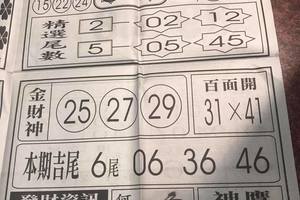 15 22 24
精選 2 02 12
尾數 5 05 45
金財神 25 27 29
百面開
31×41
本期吉尾 6尾 06 36 46
發財資訊